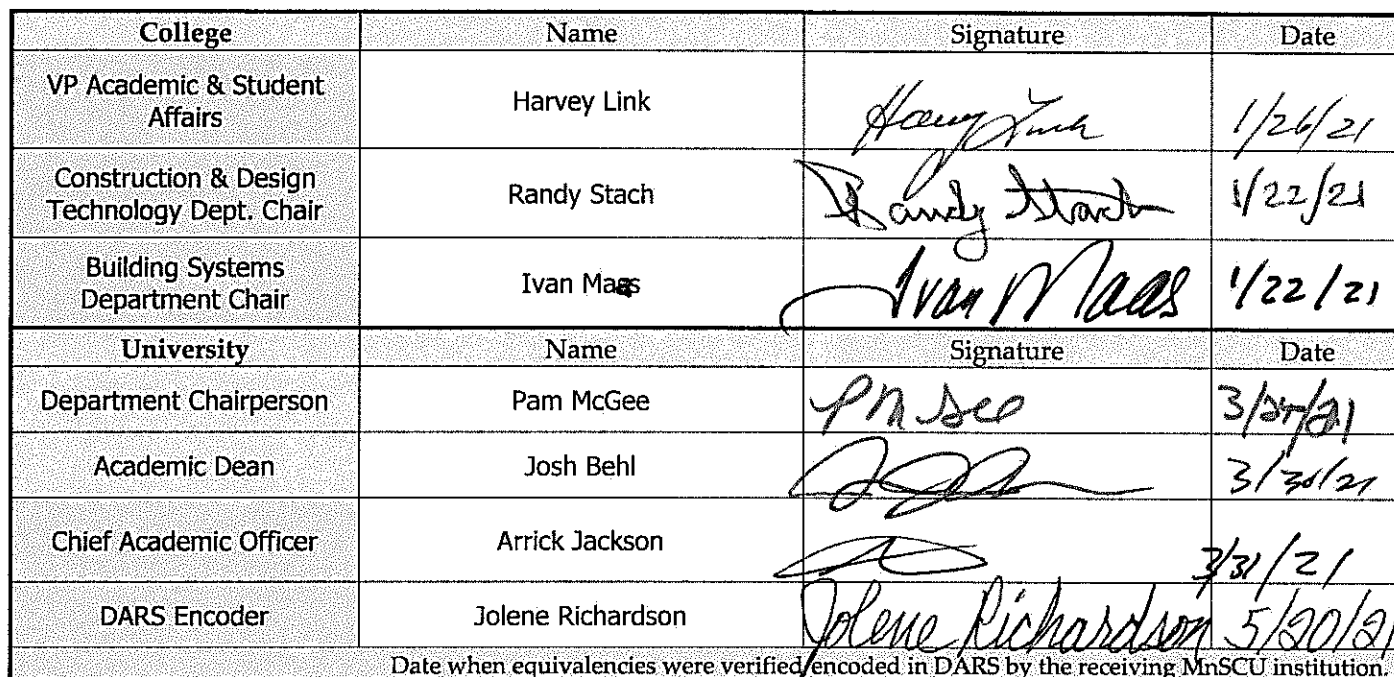 College Name Signature Date
VP Academic & Student
Affairs
Harvey Link Harvey Link 1/26/21
Construction & Design
Technology Dept. Chair
Randy Stach Randy Stach 1/22/21
Building Systems
Department Chair
Ivan Maas Ivan Maas 1/22/21
University Name Signature Date
Department Chairperson Pam McGee PMcGee 3/27/21
Academic Dean Josh Behl 3/30/21
Chief Academic Officer Arrick Jackson 3/31/21
DARS Encoder Jolene Richardson Jolene Richardson 5/20/21
Date when equivalencies were verified/encoded in DARS by the receiving MnSCU institution.